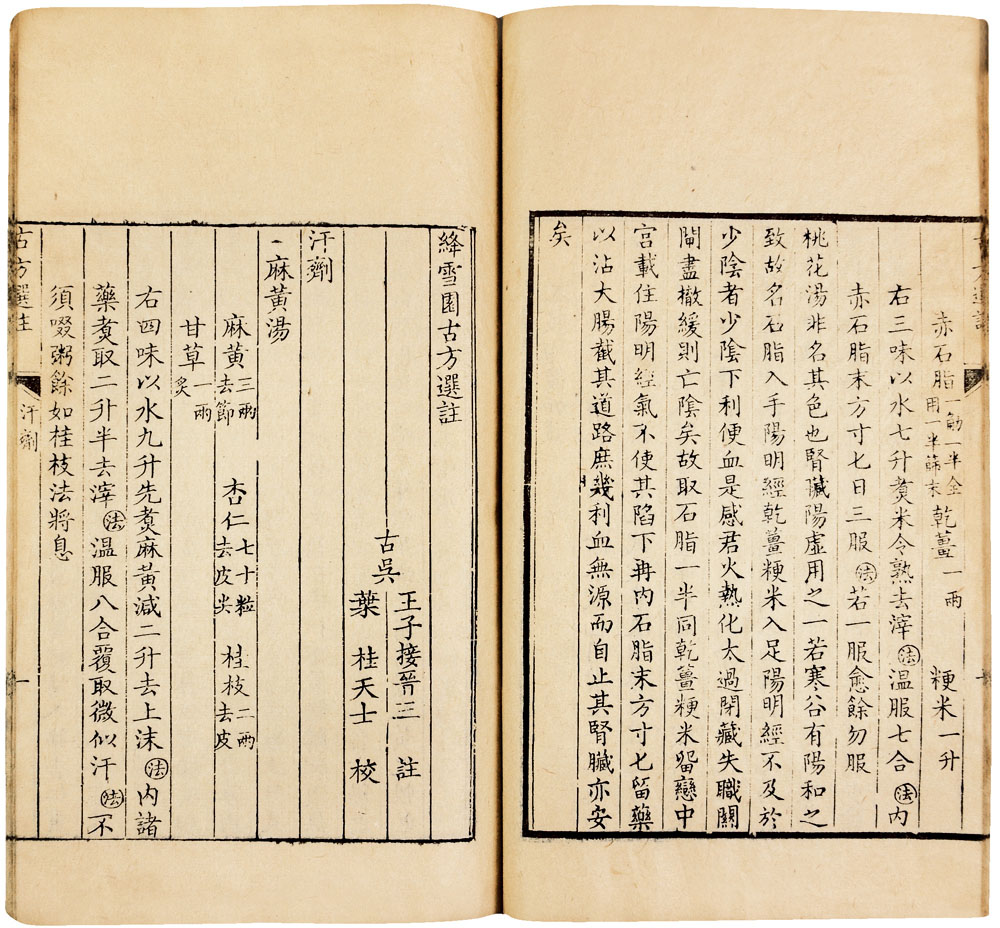 赤石脂一觔一半全用一半篩末 乾薑一兩 粳米一升
右三味以水七升煑米令熟去滓㊋法溫服七合法內
赤石脂末方寸匕日三服法若一服愈餘勿服
桃花湯非名其色也腎臟陽虛用之一若寒谷有陽和之
致故名石脂入手陽明經乾薑粳米入足陽明經不及於
少陰者少陰下利便血是感君火熱化太過閉藏失職關
閘盡撤緩則亡陰矣故取石脂一半同乾薑粳米留戀中
宮載住陽明經氣不使其陷下再內石脂末方寸匕留藥
以沾大腸截其道路庶幾利血無源而自止其腎臟亦安
矣
絳雪園古方選註
古吳 王子接晉三 註
葉桂天士 校
汗劑
麻黃湯
麻黃三兩去節 杏仁七十粒去皮尖 桂枝二兩去皮
甘草一兩炙
右四味以水九升先煑麻黃減二升去上沫法內諸
藥煑取二升半去滓法溫服八合覆取微似汗法不
須啜粥餘如桂枝法將息
古方選註 汗劑 一